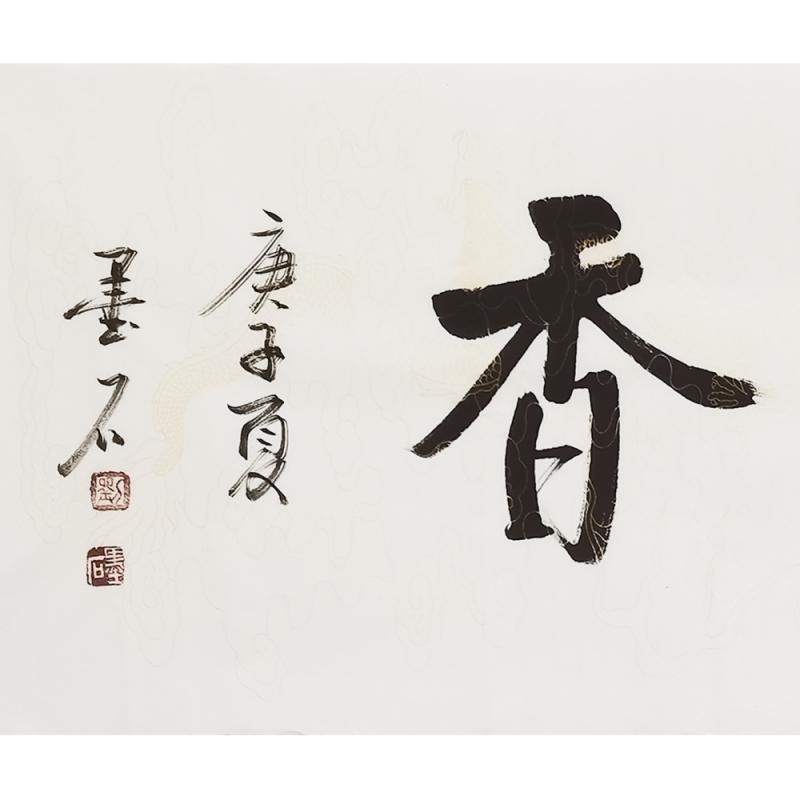 香
庚子夏
墨石
劉
墨石